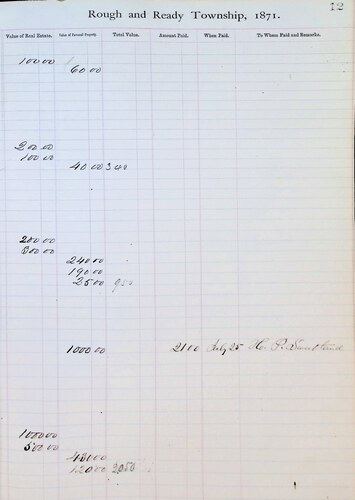 12
Rough and Ready Township, 1871.
Value of Real Estate. Value of Personal Property. Total Value. Amount Paid. When Paid. To Whom Paid and Remarks.
100 00
60 00
200 00
100 00
40 00 340
200 00
300 00
240 00
190 00
25 00
1000 00 21 00 July 25
1000 00
500 00
480 00
120 00